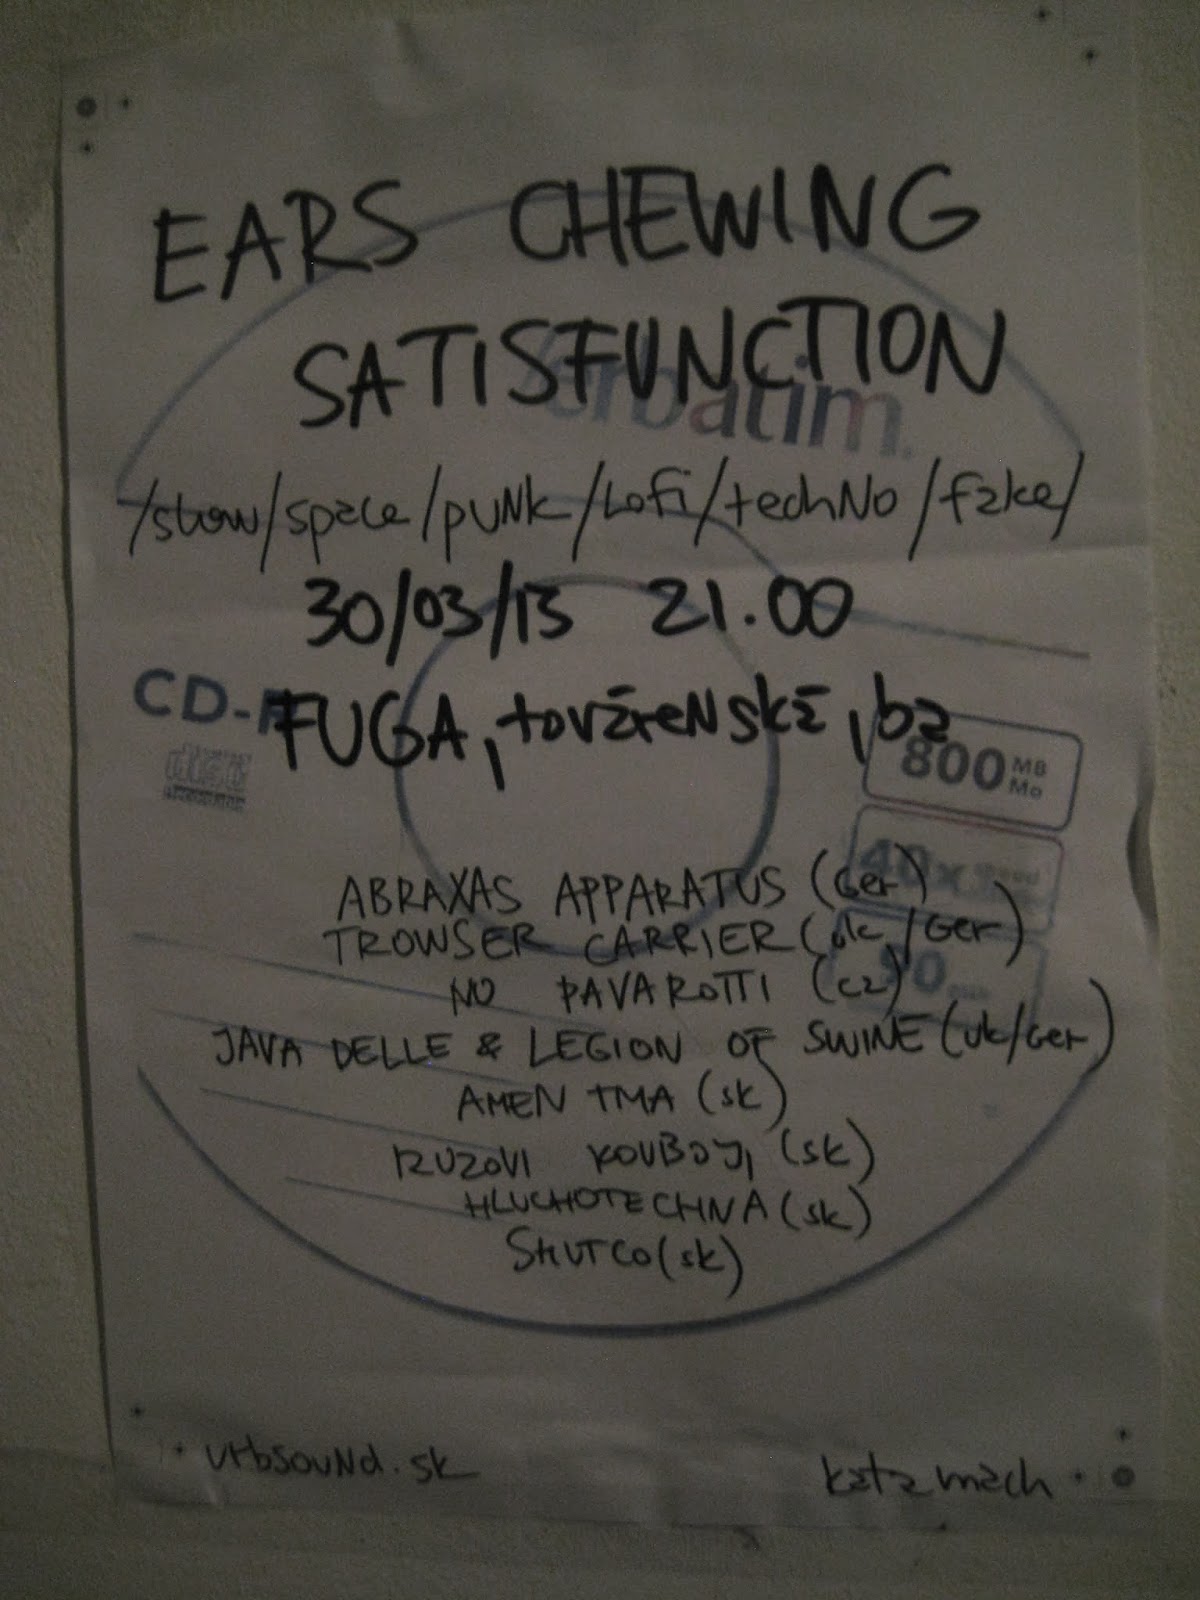 EARS CHEWING
SATISFUNCTION
Verbatim
/slow/space/puNk/Lofi/techNo/fake/
30/03/13 21.00
CD-R
FUGA, továreNská, ba
800 MB
Mo
40x
90
ABRAXAS APPARATUS (Ger)
TROWSER CARRIER (uk/Ger)
NO PAVAROTTI (cz)
JAVA DELLE & LEGION OF SWINE (uk/Ger)
AMEN TMA (sk)
RUZOVI KOVBOJI (sk)
HLUCHOTECHNA (sk)
SHUTCO (sk)
urbsouNd.sk
kata mach